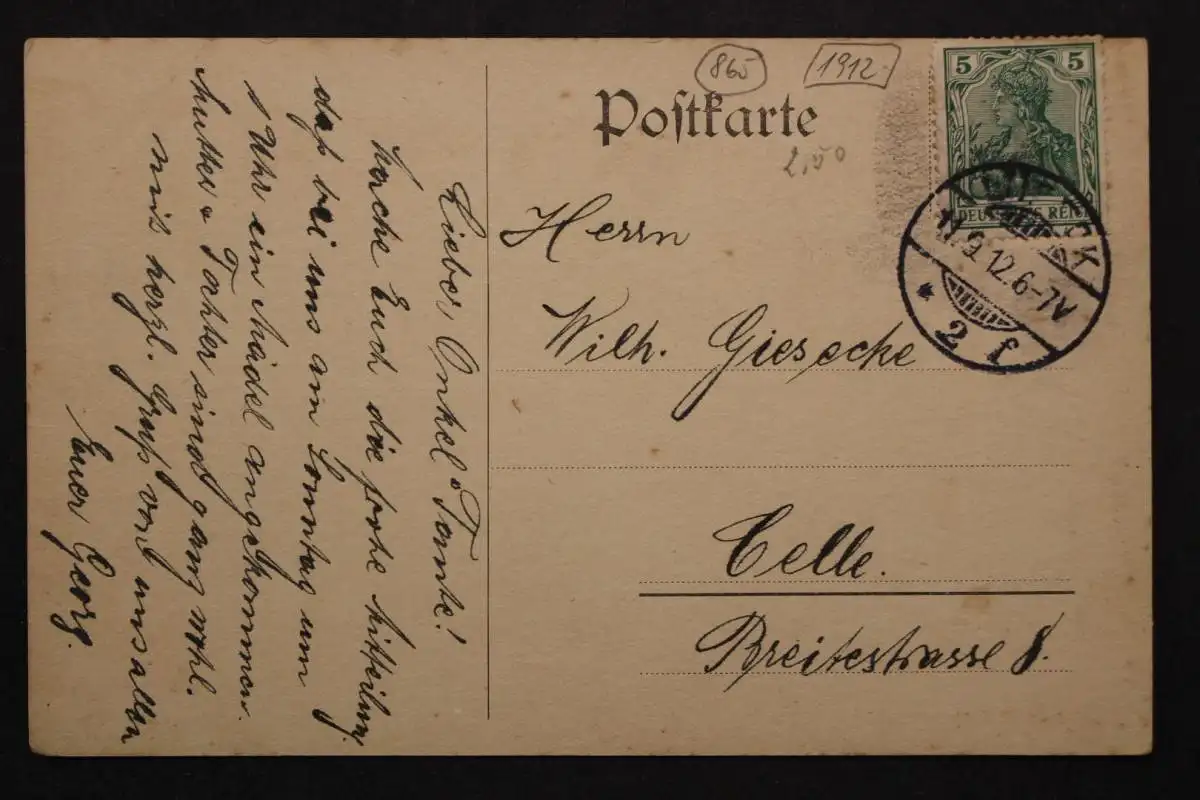 865
1912
Postkarte
2,50
5 5
DEUTSCHES REICH
9.12.6-7V
* 2 f
Herrn
Wilh. Giesecke
Celle.
Breitestrasse 8.
Lieber Onkel u Tante!
Mache Euch die frohe Mitteilung,
daß bei uns am Sonntag um
Uhr ein Mädel angekommen.
Mutter u Tochter sind ganz wohl.
mit herzl. Gruß von uns allen
Euer Georg.